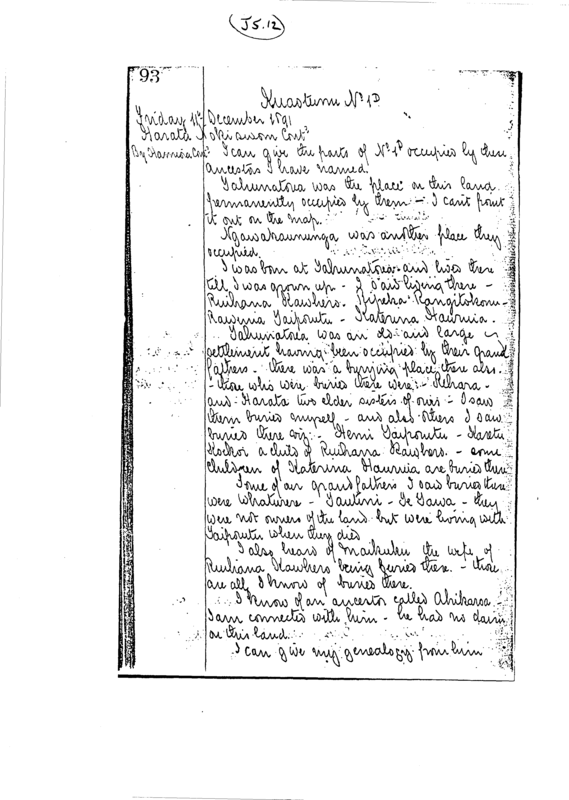 (J5.12)
93
Nº 1D
Friday 11th December 1891
Harata Contd
By I can give the parts of Nº 1D occupied by these
ancestors I have named.
Tahunatoea was the place on this land
permanently occupied by them – I can't point
it out on the map.
was another place they
occupied.
I was born at Tahunatoea and lived there
till I was grown up – I said living there –
Ruihana Kawhero.
Taipoutu – Katerina
Tahunatoea was an old and large
settlement having been occupied by their grand
fathers – there was a burying place there also.
– those who were buried there were: –
and Harata two elder sisters of ours – I saw
them buried myself – and also others I saw
buried there viz: – Hemi Taipoutu –
a child of Ruihana Kawhero. – some
children of Katerina are buried there
Some of our grandfathers I saw buried there
were Whatuwere – Tautini – Te Tawa – they
were not owners of the land but were living with
Taipoutu when they died
I also heard of Maikuku the wife of
Ruihana Kawhero being buried there. – those
are all I know of buried there.
I know of an ancestor called Ahikaroa –
I am connected with him – he had no claim
on this land.
I can give my genealogy from him